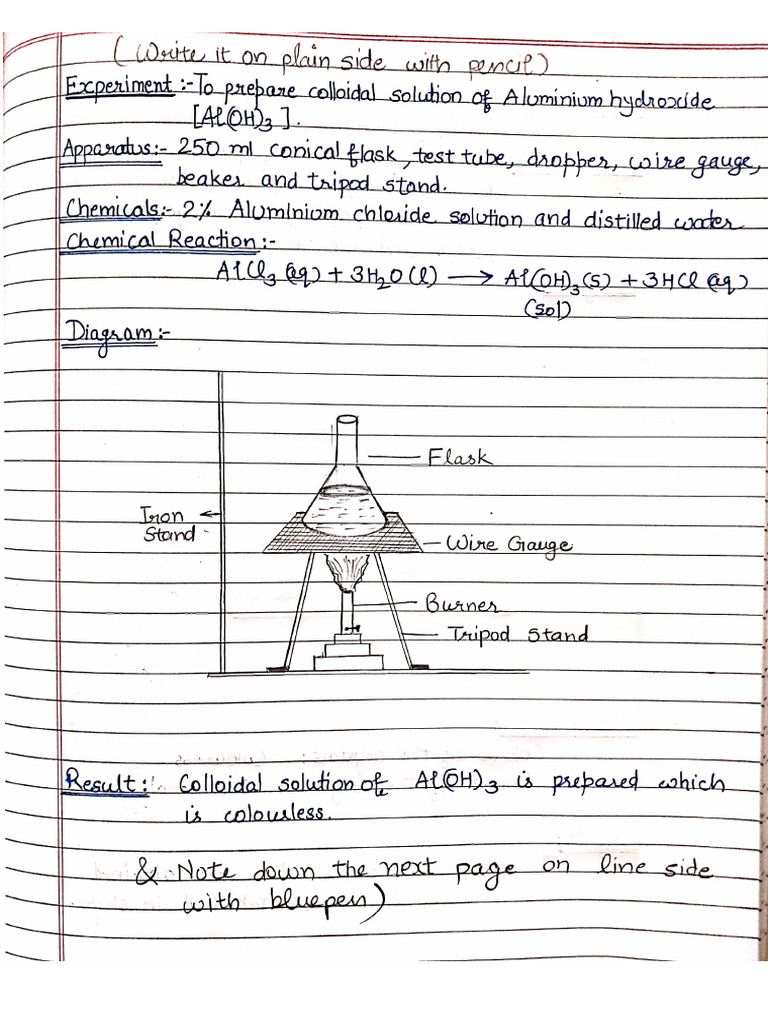 (Write it on plain side with pencil)
Experiment :- To prepare colloidal solution of Aluminium hydroxide
[Al(OH)3].
Apparatus:- 250 ml conical flask, test tube, dropper, wire gauge,
beaker and tripod stand.
Chemicals:- 2% Aluminium chloride solution and distilled water
Chemical Reaction:-
AlCl3 (aq) + 3H2O (l) ⟶ Al(OH)3 (s) + 3HCl (aq)
(sol)
Diagram:-
Flask
Iron
Stand
Wire Gauge
Burner
Tripod Stand
Result:- Colloidal solution of Al(OH)3 is prepared which
is colourless.
& Note down the next page on line side
with bluepen)